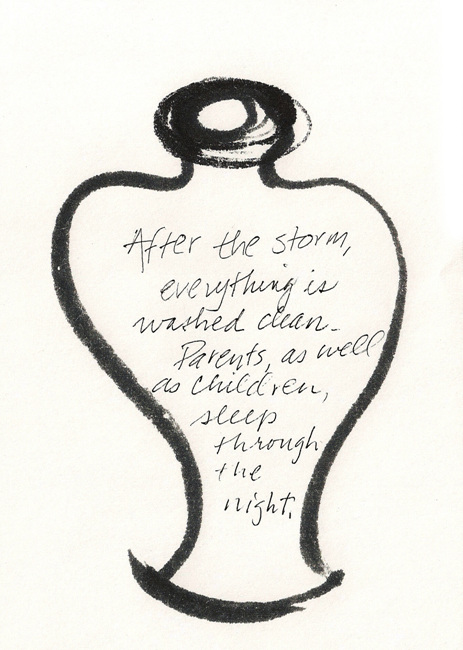 After the storm,
everything is
washed clean.
Parents, as well
as children,
sleep
through
the
night.